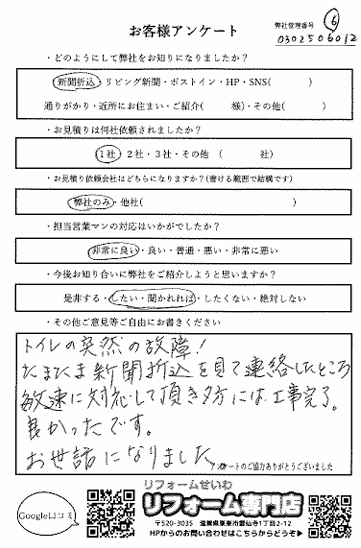 お客様アンケート
弊社管理番号 ⑥
0302506012
・どのようにして弊社をお知りになりましたか?
新聞折込・リビング新聞・ポストイン・HP・SNS( )
通りがかり・近所にお住まい・ご紹介( 様)・その他( )
・お見積りは何社依頼されましたか?
1社・2社・3社・その他 ( 社)
・お見積り依頼会社はどちらになりますか?(書ける範囲で結構です)
弊社のみ・他社( )
・担当営業マンの対応はいかがでしたか?
非常に良い・良い・普通・悪い・非常に悪い
・今後お知り合いに弊社をご紹介しようと思いますか?
是非する・したい・聞かれれば・したくない・絶対しない
・その他ご意見等ご自由にお書きください
トイレの突然の故障!
たまたま新聞折込を見て連絡したところ
敏速に対応して頂き夕方には工事完了。
良かったです。
お世話になりました
アンケートのご協力ありがとうございました
Google口コミ
リフォームせいわ
リフォーム専門店
〒520-3035 滋賀県栗東市霊仙寺1丁目2-12
HPからのお問い合わせはこちらからどうぞ▶